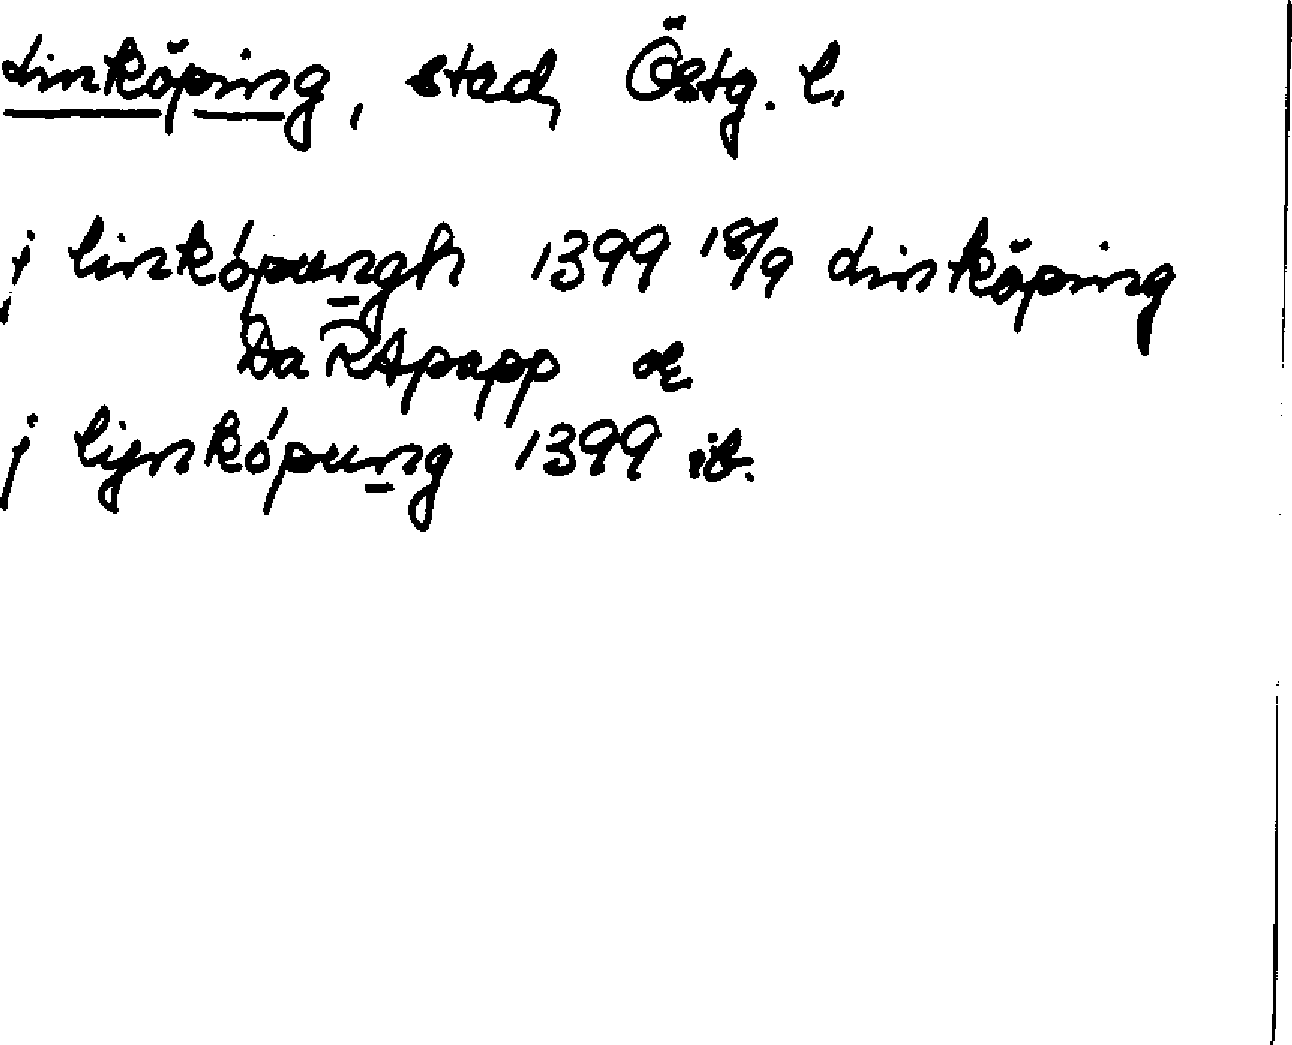 Linköping, stad, Östg. l.
j linkópungh 1399 18/9 Linköping
Da RApapp or
j lynkópung 1399 ib.